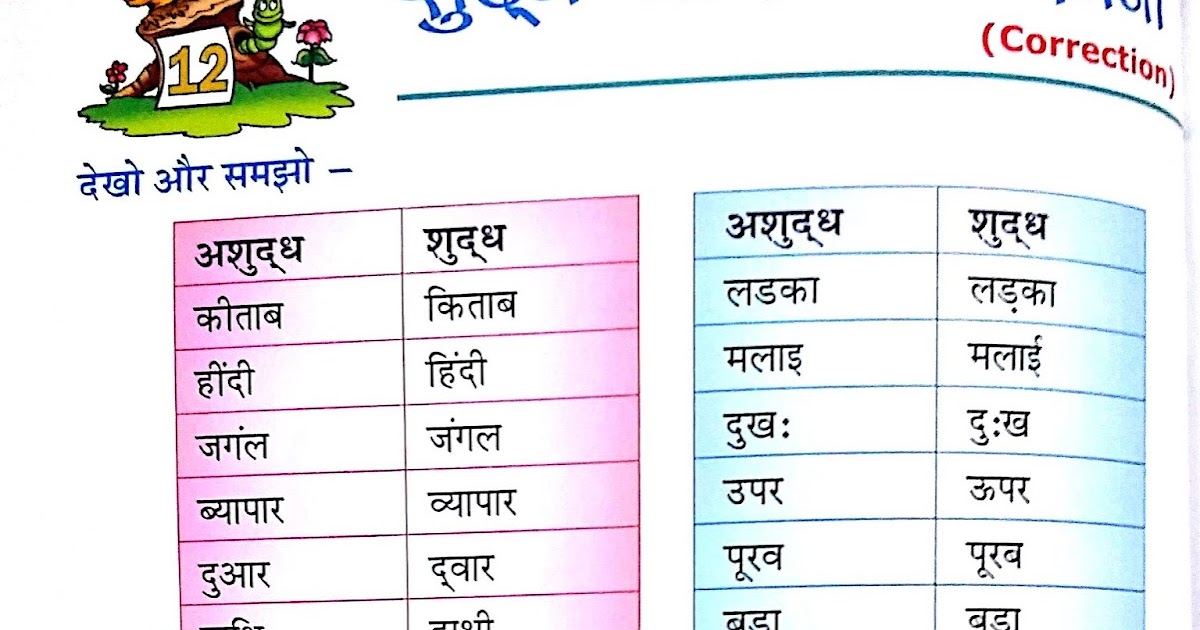 12
शुद्ध
(Correction)
देखो और समझो –
अशुद्ध शुद्ध
कीताब किताब
हींदी हिंदी
जगंल जंगल
ब्यापार व्यापार
दुआर द्वार
अशुद्ध शुद्ध
लडका लड़का
मलाइ मलाई
दुखः दुःख
उपर ऊपर
पूरव पूरब